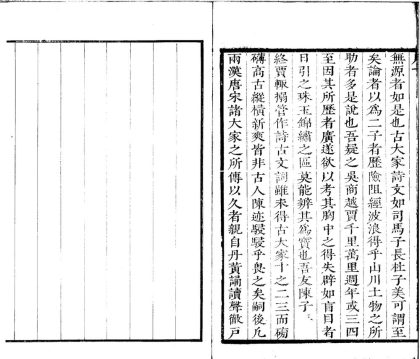 無源者如是也古大家詩文如司馬子長杜子美可謂至
矣論者以為二子者歷險阻經波浪得乎山川土物之所
助者多是說也吾疑之吳商越賈千里萬里週年或三四
至因其所歷者廣遂欲以考其胸中之得失辟如盲目者
日引之珠玉錦繡之區莫能辨其為寶也吾友陳子
終賈輒搦管作詩古文詞雖未得古大家十之二三而磅
礡高古縱橫新爽皆非古人陳迹駸駸乎輿之矣嗣後凡
兩漢唐宋諸大家之所傳以久者親自丹黃誦讀聲徹戶